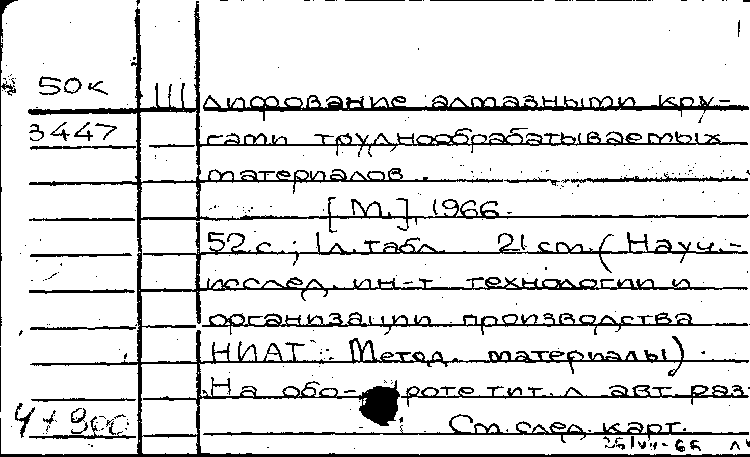 1
50к Шлифование алмазными кру-
3447 гами труднообрабатываемых
материалов.
[М.], 1966.
52 с.; 1 л. табл. 21 см. (Науч.-
исслед. ин-т технологии и
организации производства
НИАТ. Метод. материалы).
На обо- роте тит. л авт. раз
4 + 900 См. след. карт.